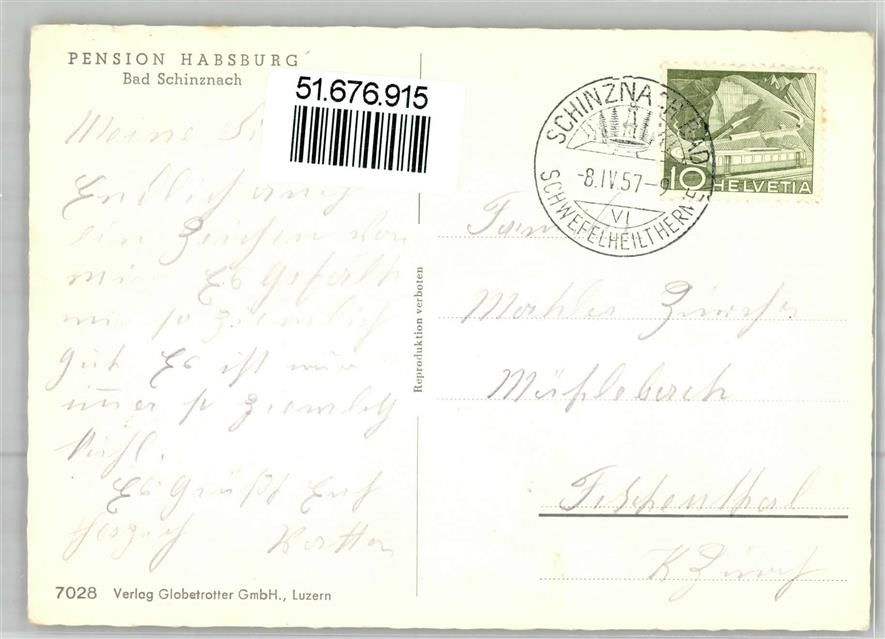 PENSION HABSBURG
Bad Schinznach
51.676.915
Meine
Endlich auch
ein Zeichen von
mir Es Gefallt
mir so Ziemlich
Gut Es ist nur
immer so Ziemlich
Kühl.
Es Grüßt Euch
7028 Verlag Globetrotter GmbH., Luzern
Reproduktion verboten
SCHINZNACH BAD
-8.IV.57-9
VI
SCHWEFELHEILTHERME
10 HELVETIA
Fam
Zürcher
Fischenthal
K Zürich